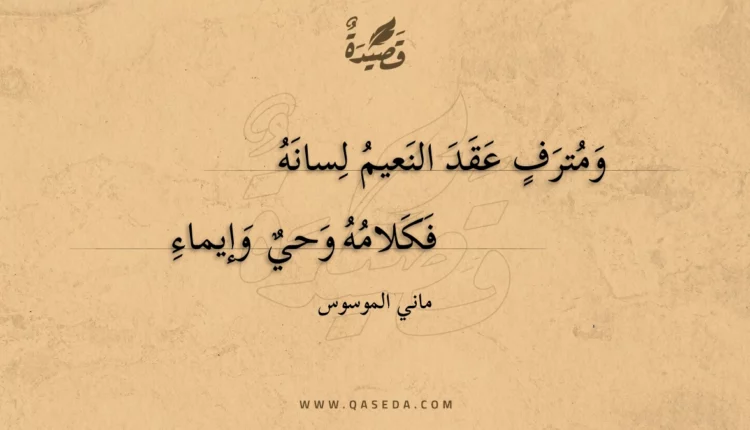 قَصِيدَةٌ
وَمُترَفٍ عَقَدَ النَعيمُ لِسانَهُ
فَكَلامُهُ وَحيٌ وَإيماءِ
ماني الموسوس
WWW.QASEDA.COM